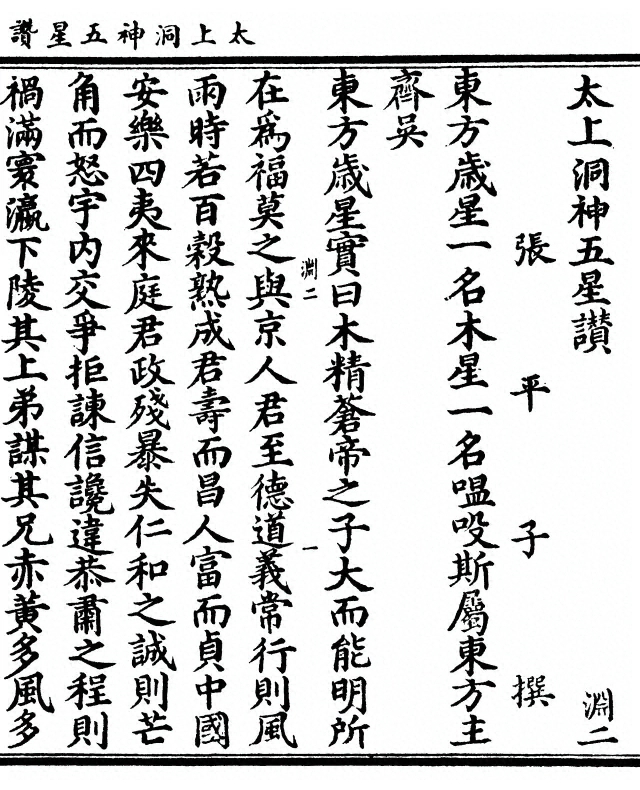 太上洞神五星讚
太上洞神五星讃 淵二
張平子撰
東方歳星一名木星一名嗢㕞斯屬東方主
齊吳
東方歳星實曰木精蒼帝之子大而能明所
淵二 一
在爲福莫之與京人君至德道義常行則風
雨時若百穀熟成君壽而昌人富而貞中國
安樂四夷來庭君政殘暴失仁和之誠則芒
角而怒宇内交爭拒諫信讒違恭肅之程則
禍滿寰瀛下陵其上弟謀其兄赤黄多風多